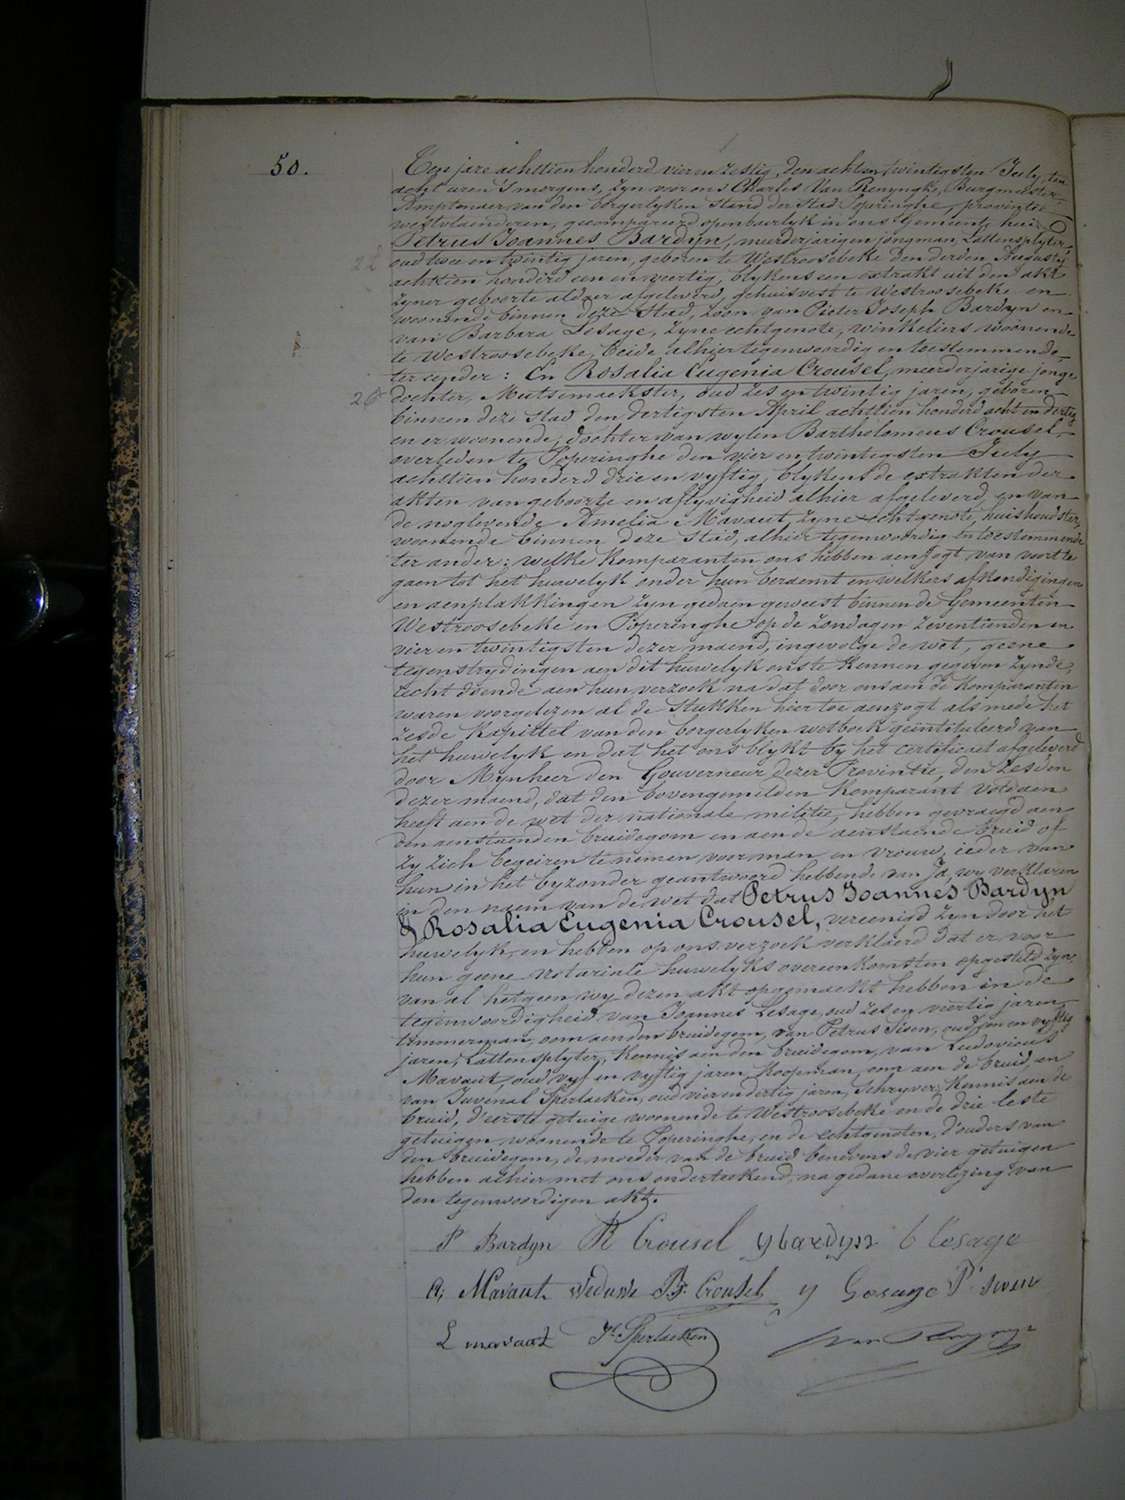 50.
Ten jare achttien honderd vier en zestig, den acht en twintigsten July, ten
acht uren 's morgens, zyn voor ons Charles Van Renynghe, Burgmeester
Amptenaer van den borgerlyken stand der stad Poperinghe, provintie
westvlaenderen, gecompareerd openbaerlyk in ons Gemeente huis
Petrus Joannes Bardyn, meerderjarigen jongman, Lattensplyter,
22 oud twee en twintig jaren, geboren te Westroosebeke den derden Augusty
achttien honderd een en veertig, blykens een extrakt uit den akt
zyner geboorte aldaer afgeleverd, gehuisvest te Westroosebeke en
woonende binnen deze stad, zoon van Pieter Joseph Bardyn en
van Barbara Lesage, zyne echtgenote, winkeliers woonende
te Westroosebeke, beide alhier tegenwoordig en toestemmende
ter eender: En Rosalia Eugenia Crousel, meerderjarige jonge
26 dochter, Mutsemaekster, oud zes en twintig jaren, geboren
binnen deze stad den dertigsten April achttien honderd acht en dertig
en er woonende, dochter van wylen Bartholomeus Crousel
overleden te Poperinghe den vier en twintigsten July
achttien honderd drie en vyftig, blykens de extrakten der
akten van geboorte en aflyvigheid alhier afgeleverd, en van
de noglevende Amelia Mavaut, zyne echtgenote, huishoudster,
woonende binnen deze stad, alhier tegenwoordig en toestemmende
ter ander; welke Komparanten ons hebben aenzogt van voort te
gaen tot het huwelyk onder hun beraemt en welkers afkondigingen
en aenplakkingen zyn gedaen geweest binnen de Gemeenten
Westroosebeke en Poperinghe op de zondagen zeventienden en
vier en twintigsten dezer maend, ingevolge de wet, geene
tegenstrydingen aen dit huwelyk ons te kennen gegeven zynde,
recht doende aen hun verzoek na dat door ons aen de Komparanten
waren voorgelezen al de stukken hier toe aenzogt als mede het
zesde Kapittel van den borgerlyken wetboek geïntituleerd van
het huwelyk en dat het ons blykt by het certificaet afgeleverd
door Mynheer den Gouverneur dezer Provintie, den zesden
dezer maend, dat den bovengemelden Komparant voldaen
heeft aen de wet der nationale militie, hebben gevraegd aen
den aenstaenden bruidegom en aen de aenstaende bruid of
zy zich begeiren te nemen voor man en vrouw, ieder van
hun in het byzonder geantwoord hebbende van Ja, wy verklaren
in den naem van de wet dat Petrus Joannes Bardyn
& Rosalia Eugenia Crousel, vereenigd zyn door het
huwelyk, en hebben op ons verzoek verklaerd dat er voor
hun geene notariale huwelyks overeenkomsten opgesteld zyn,
van al hetgeen wy dezen akt opgemaekt hebben in de
tegenwoordigheid van Joannes Lesage, oud zes en veertig jaren
timmerman, oom aen den bruidegom, van Petrus Swen, oud en vyftig
jaren, Lattensplyter, Kennis aen den bruidegom, van Ludovicus
Mavaut, oud vyf en vyftig jaren, Koopman, oom aen de bruid, en
van Juvenal Sperlaeken, oud vier en dertig jaren, schryver, Kennis aen de
bruid, d'eerste getuige woonende te Westroosebeke en de drie leste
getuigen woonende te Poperinghe, en de echtgenoten, d'ouders van
den bruidegom, de moeder van de bruid benevens de vier getuigen
hebben alhier met ons onderteekend, na gedane overlezing van
den tegenwoordigen akt.
P Bardyn R Crousel y bardyn b lesage
A, Mavaut weduwe B. Crousel y Lesage P. Swen
L mavaut J. Sperlaeken Van Renynghe